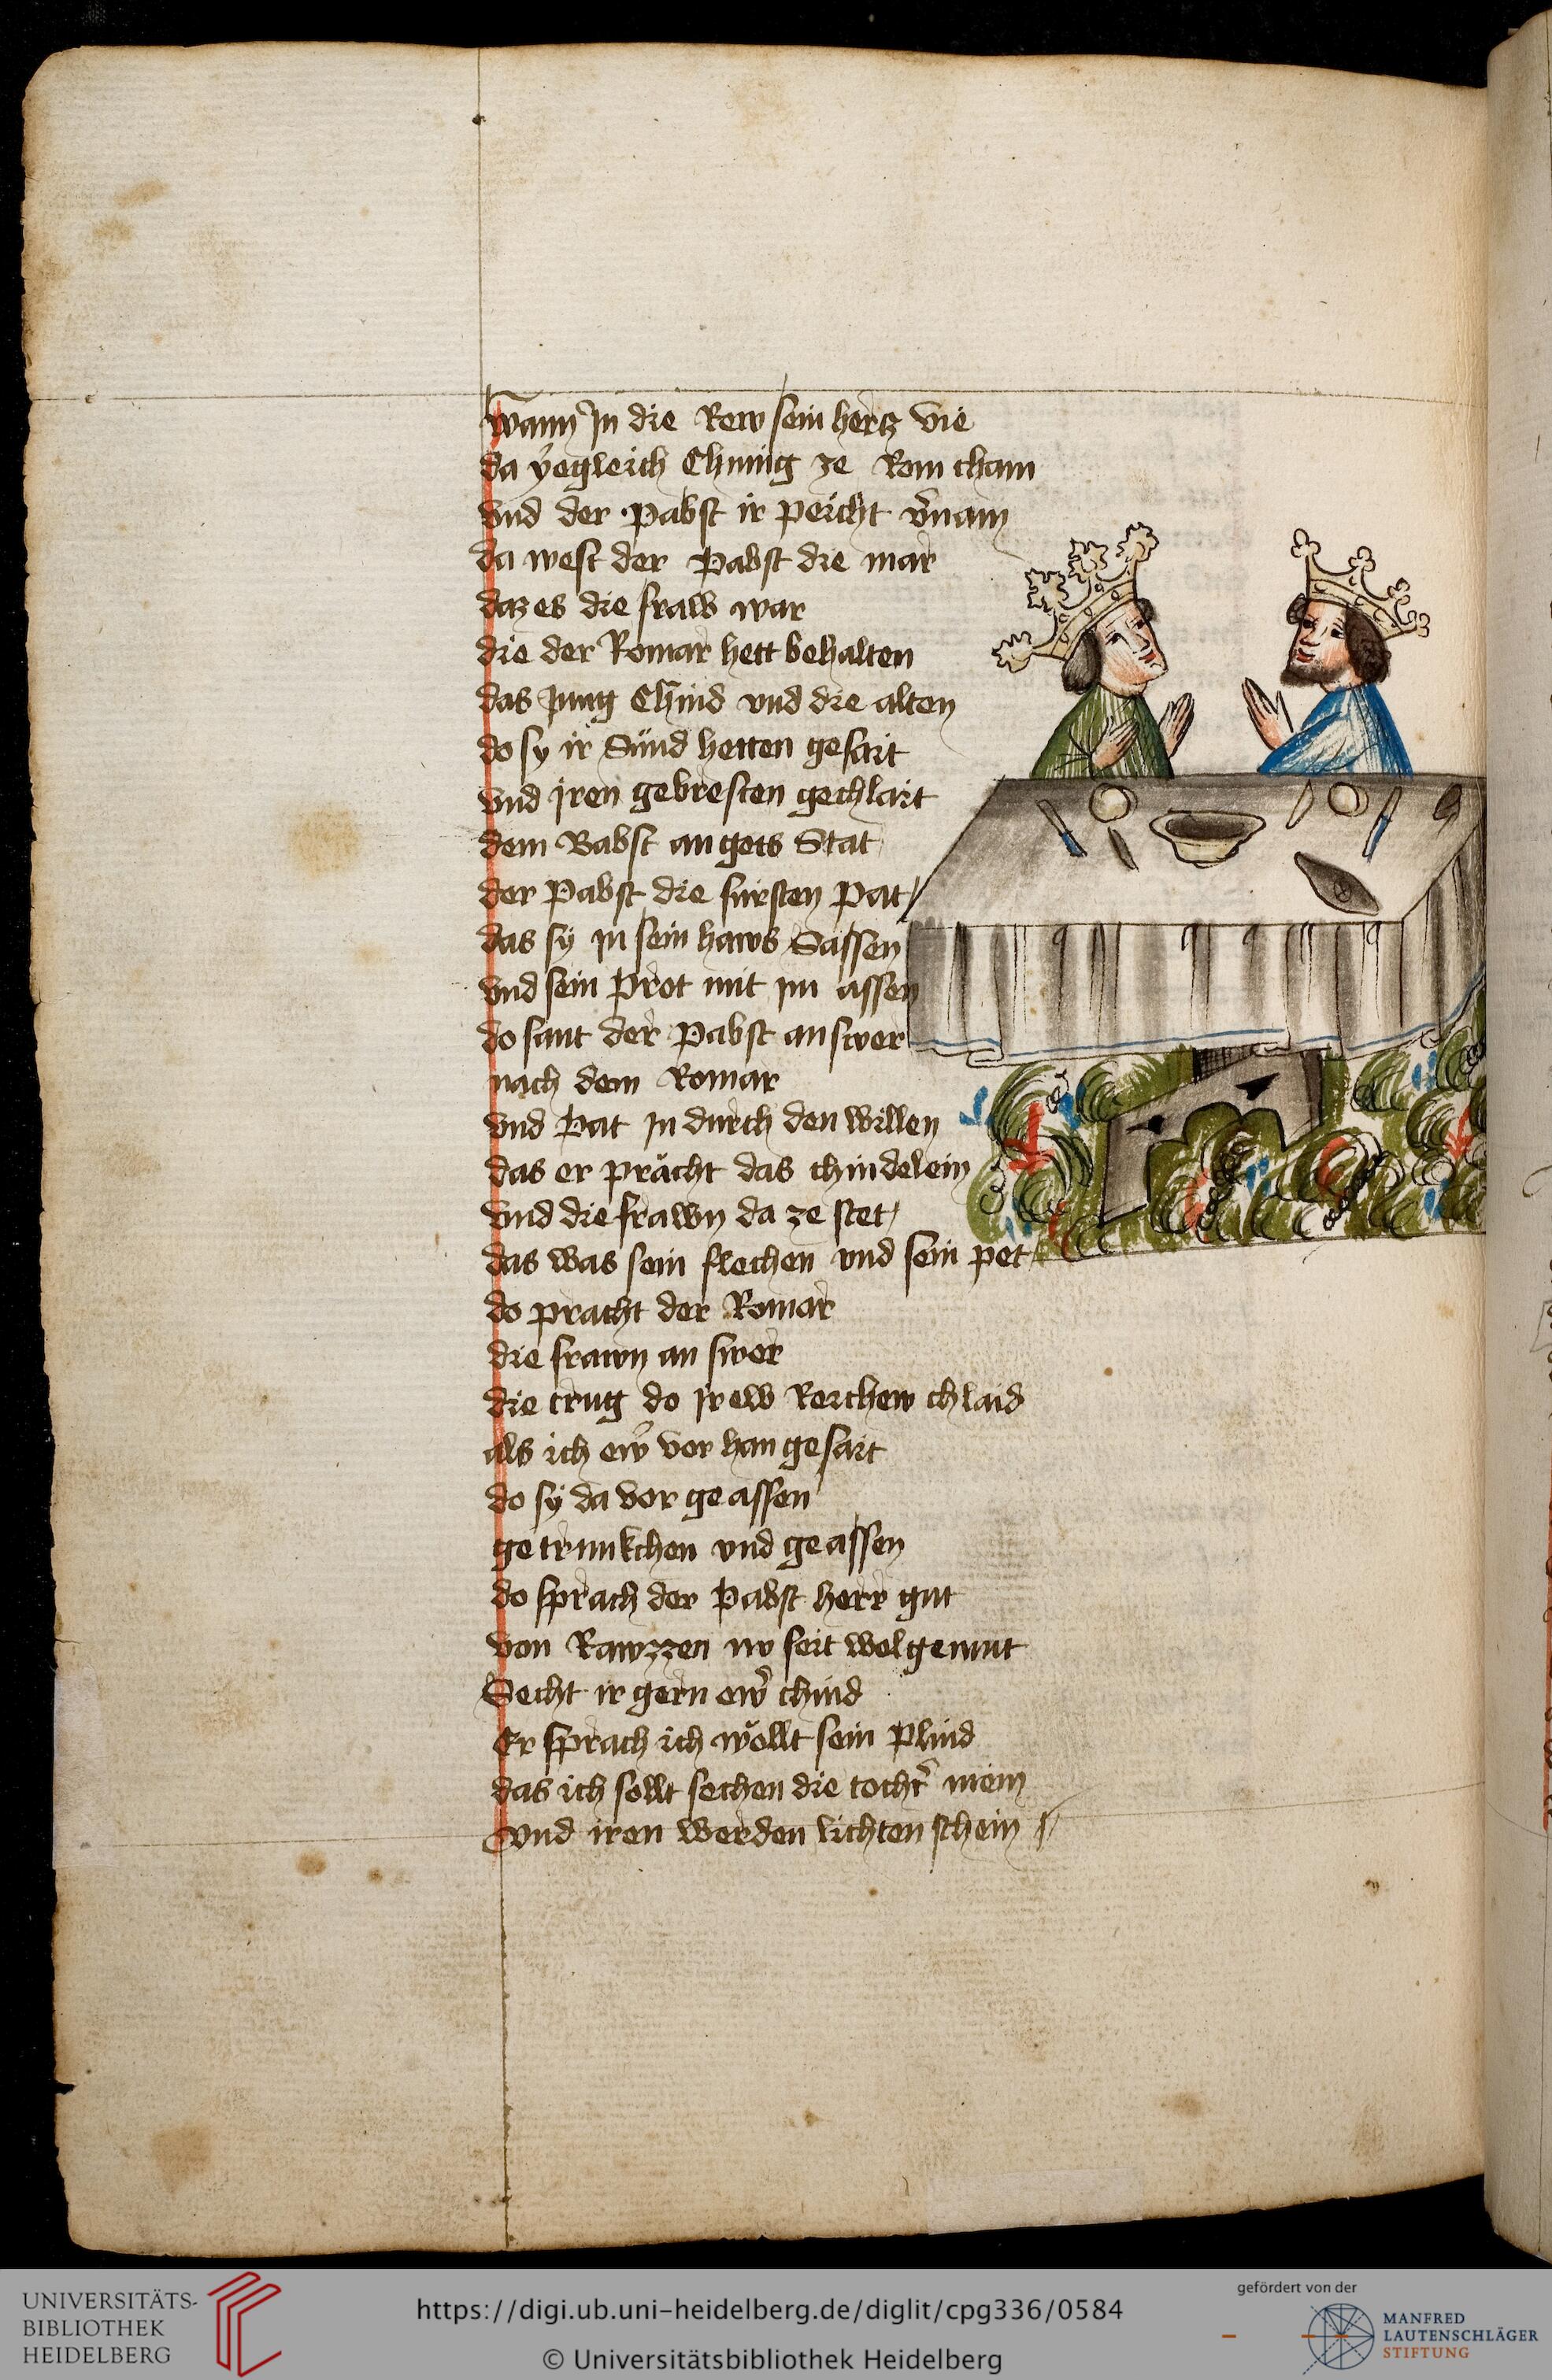 Wann Jn die Rew sein hertz vie
da yegleich Chunig ze Rom cham
vnd der Pabst ir peicht v̾nam
da west der Pabst die mär
daz es die fraw war
die der Romär hett behalten
das Jung Chind vnd die alten
do sy ir Sünd hetten gesait
vnd jren gebresten gechlait
dem Babst an gots Stat
der Pabst die fürsten Pat
das sy in sein haws Sassen
vnd sein Prot mit im assen
do sant der Pabst an swer
nach dem Romar
vnd Pat jn durch den willen
das er prächt das chindelein
vnd die frawn da ze stet
das was sein flechen vnd sein pet
do pracht der Romär
die frawn an swer
die trug do jrew Reichew chlaid
als ich ew̾ vor han gesait
do sy da vor geassen
getrunkchen vnd geassen
do sprach der Pabst herr gut
von Rawzzen nv seit wolgemut
Secht ir gern ew̾ chind
Er sprach ich wöllt sein Plind
das ich sollt sechen die tocht̾ mein
vnd iren werden lichten schein
UNIVERSITÄTS-
BIBLIOTHEK
HEIDELBERG
https://digi.ub.uni-heidelberg.de/diglit/cpg336/0584
© Universitätsbibliothek Heidelberg
gefördert von der
MANFRED
LAUTENSCHLÄGER
STIFTUNG